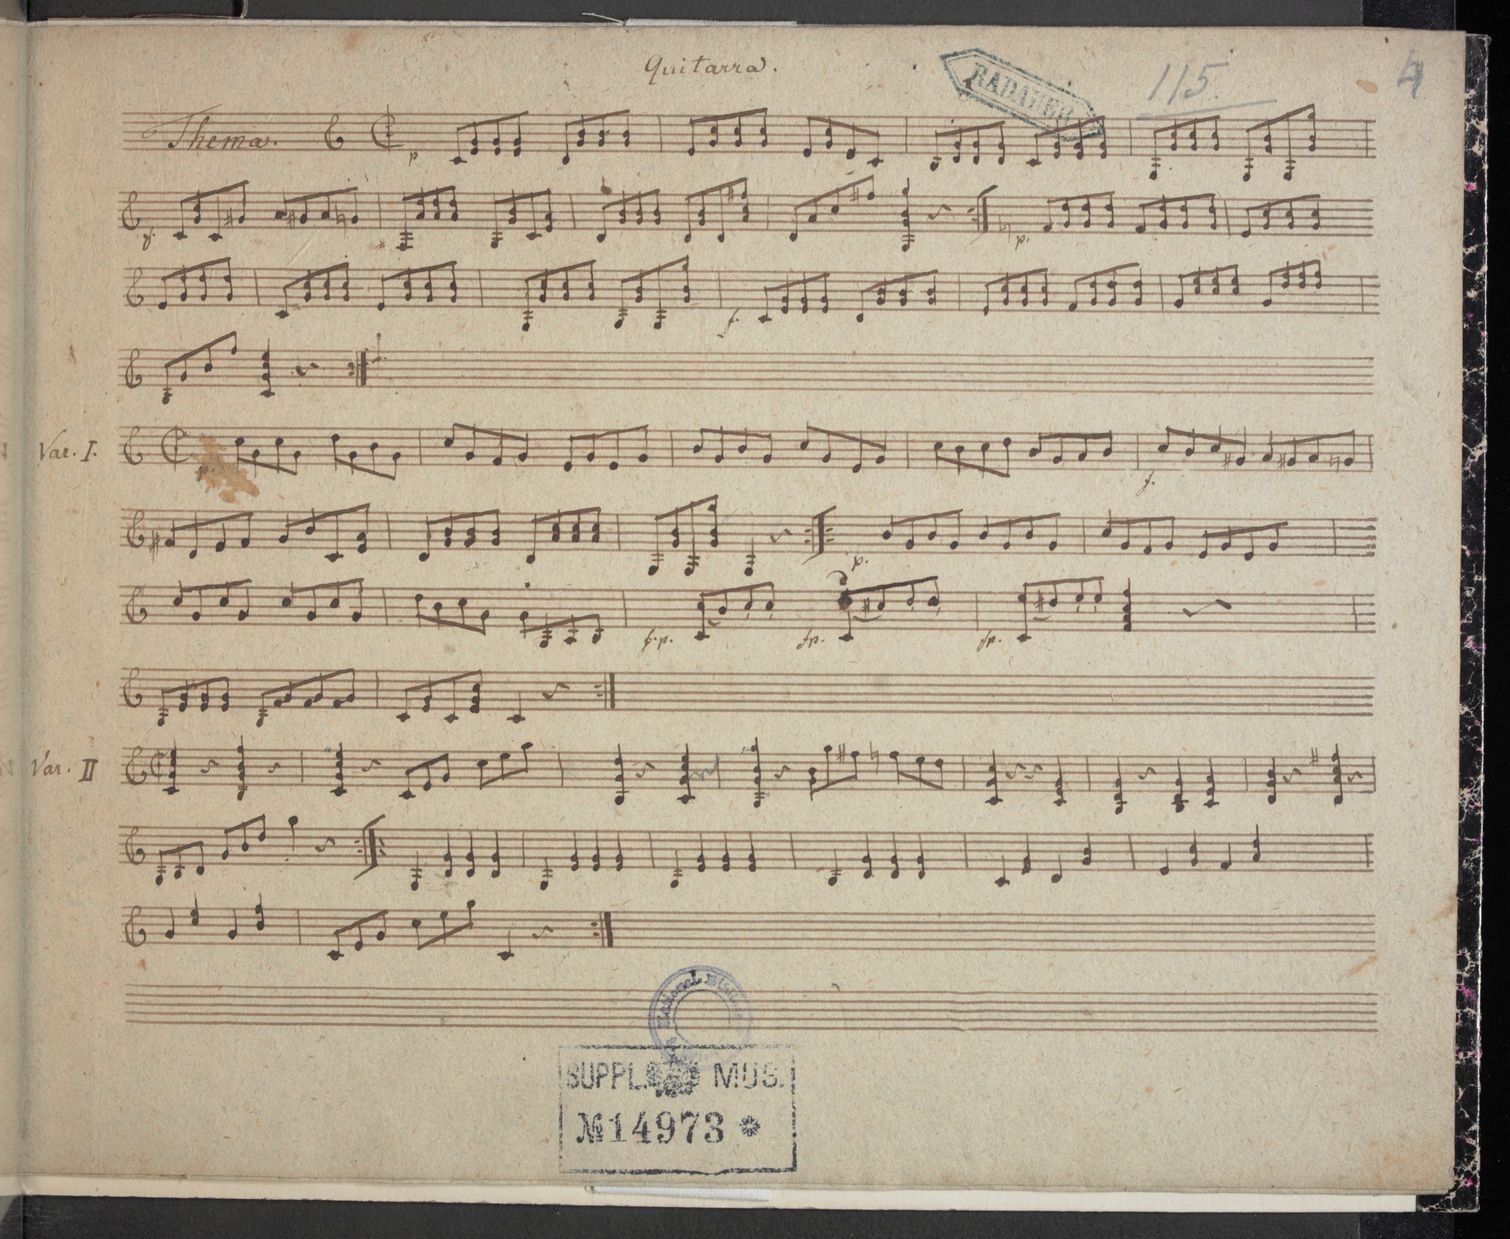 Quitarra.
RADAUER
115.
4
Thema.
p
p.
p.
f.
Var. I.
p.
f.
p.
f.p.
fp.
fp.
Var. II
SUPPL. MUS.
№ 14973 *